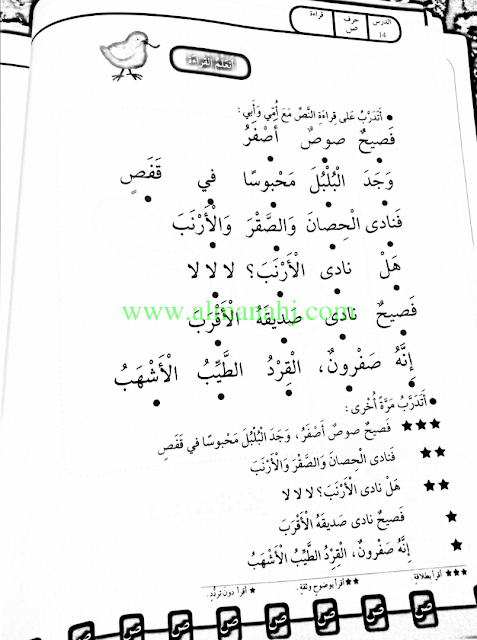 الدرس 14
حرف ص
قراءة
أَتَعَلَّمُ الْقِراءَةَ
● أَتَدَرَّبُ عَلى قِراءَةِ النَّصِّ مَعَ أُمّي وَأَبي:
فَصيحٌ صوصٌ أَصْفَرُ
وَجَدَ الْبُلْبُلَ مَحْبوسًا في قَفَصٍ
فَنادى الْحِصانَ وَالصَّقْرَ وَالْأَرْنَبَ
هَلْ نادى الْأَرْنَبَ؟ لا لا لا
فَصيحٌ نادى صَديقَهُ الْأَقْرَبَ
www.almanahj.com
إِنَّهُ صَفْرونٌ، الْقِرْدُ الطَّيِّبُ الْأَشْهَبُ
● أَتَدَرَّبُ مَرَّةً أُخْرى:
★★★ فَصيحٌ صوصٌ أَصْفَرُ، وَجَدَ الْبُلْبُلَ مَحْبوسًا في قَفَصٍ
★★ فَنادى الْحِصانَ وَالصَّقْرَ وَالْأَرْنَبَ
★★ هَلْ نادى الْأَرْنَبَ؟ لا لا لا
★ فَصيحٌ نادى صَديقَهُ الْأَقْرَبَ
★ إِنَّهُ صَفْرونٌ، الْقِرْدُ الطَّيِّبُ الْأَشْهَبُ
★★★ أقرأ بطلاقةٍ. ★★ أقرأ بوضوحٍ وثقةٍ. ★ أقرأ دونَ تردُّدٍ.
ص ص ص ص ص ص ص ص